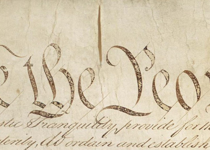 e the Peo
stic Tranquility, provide for the
sterity, do ordain and establish